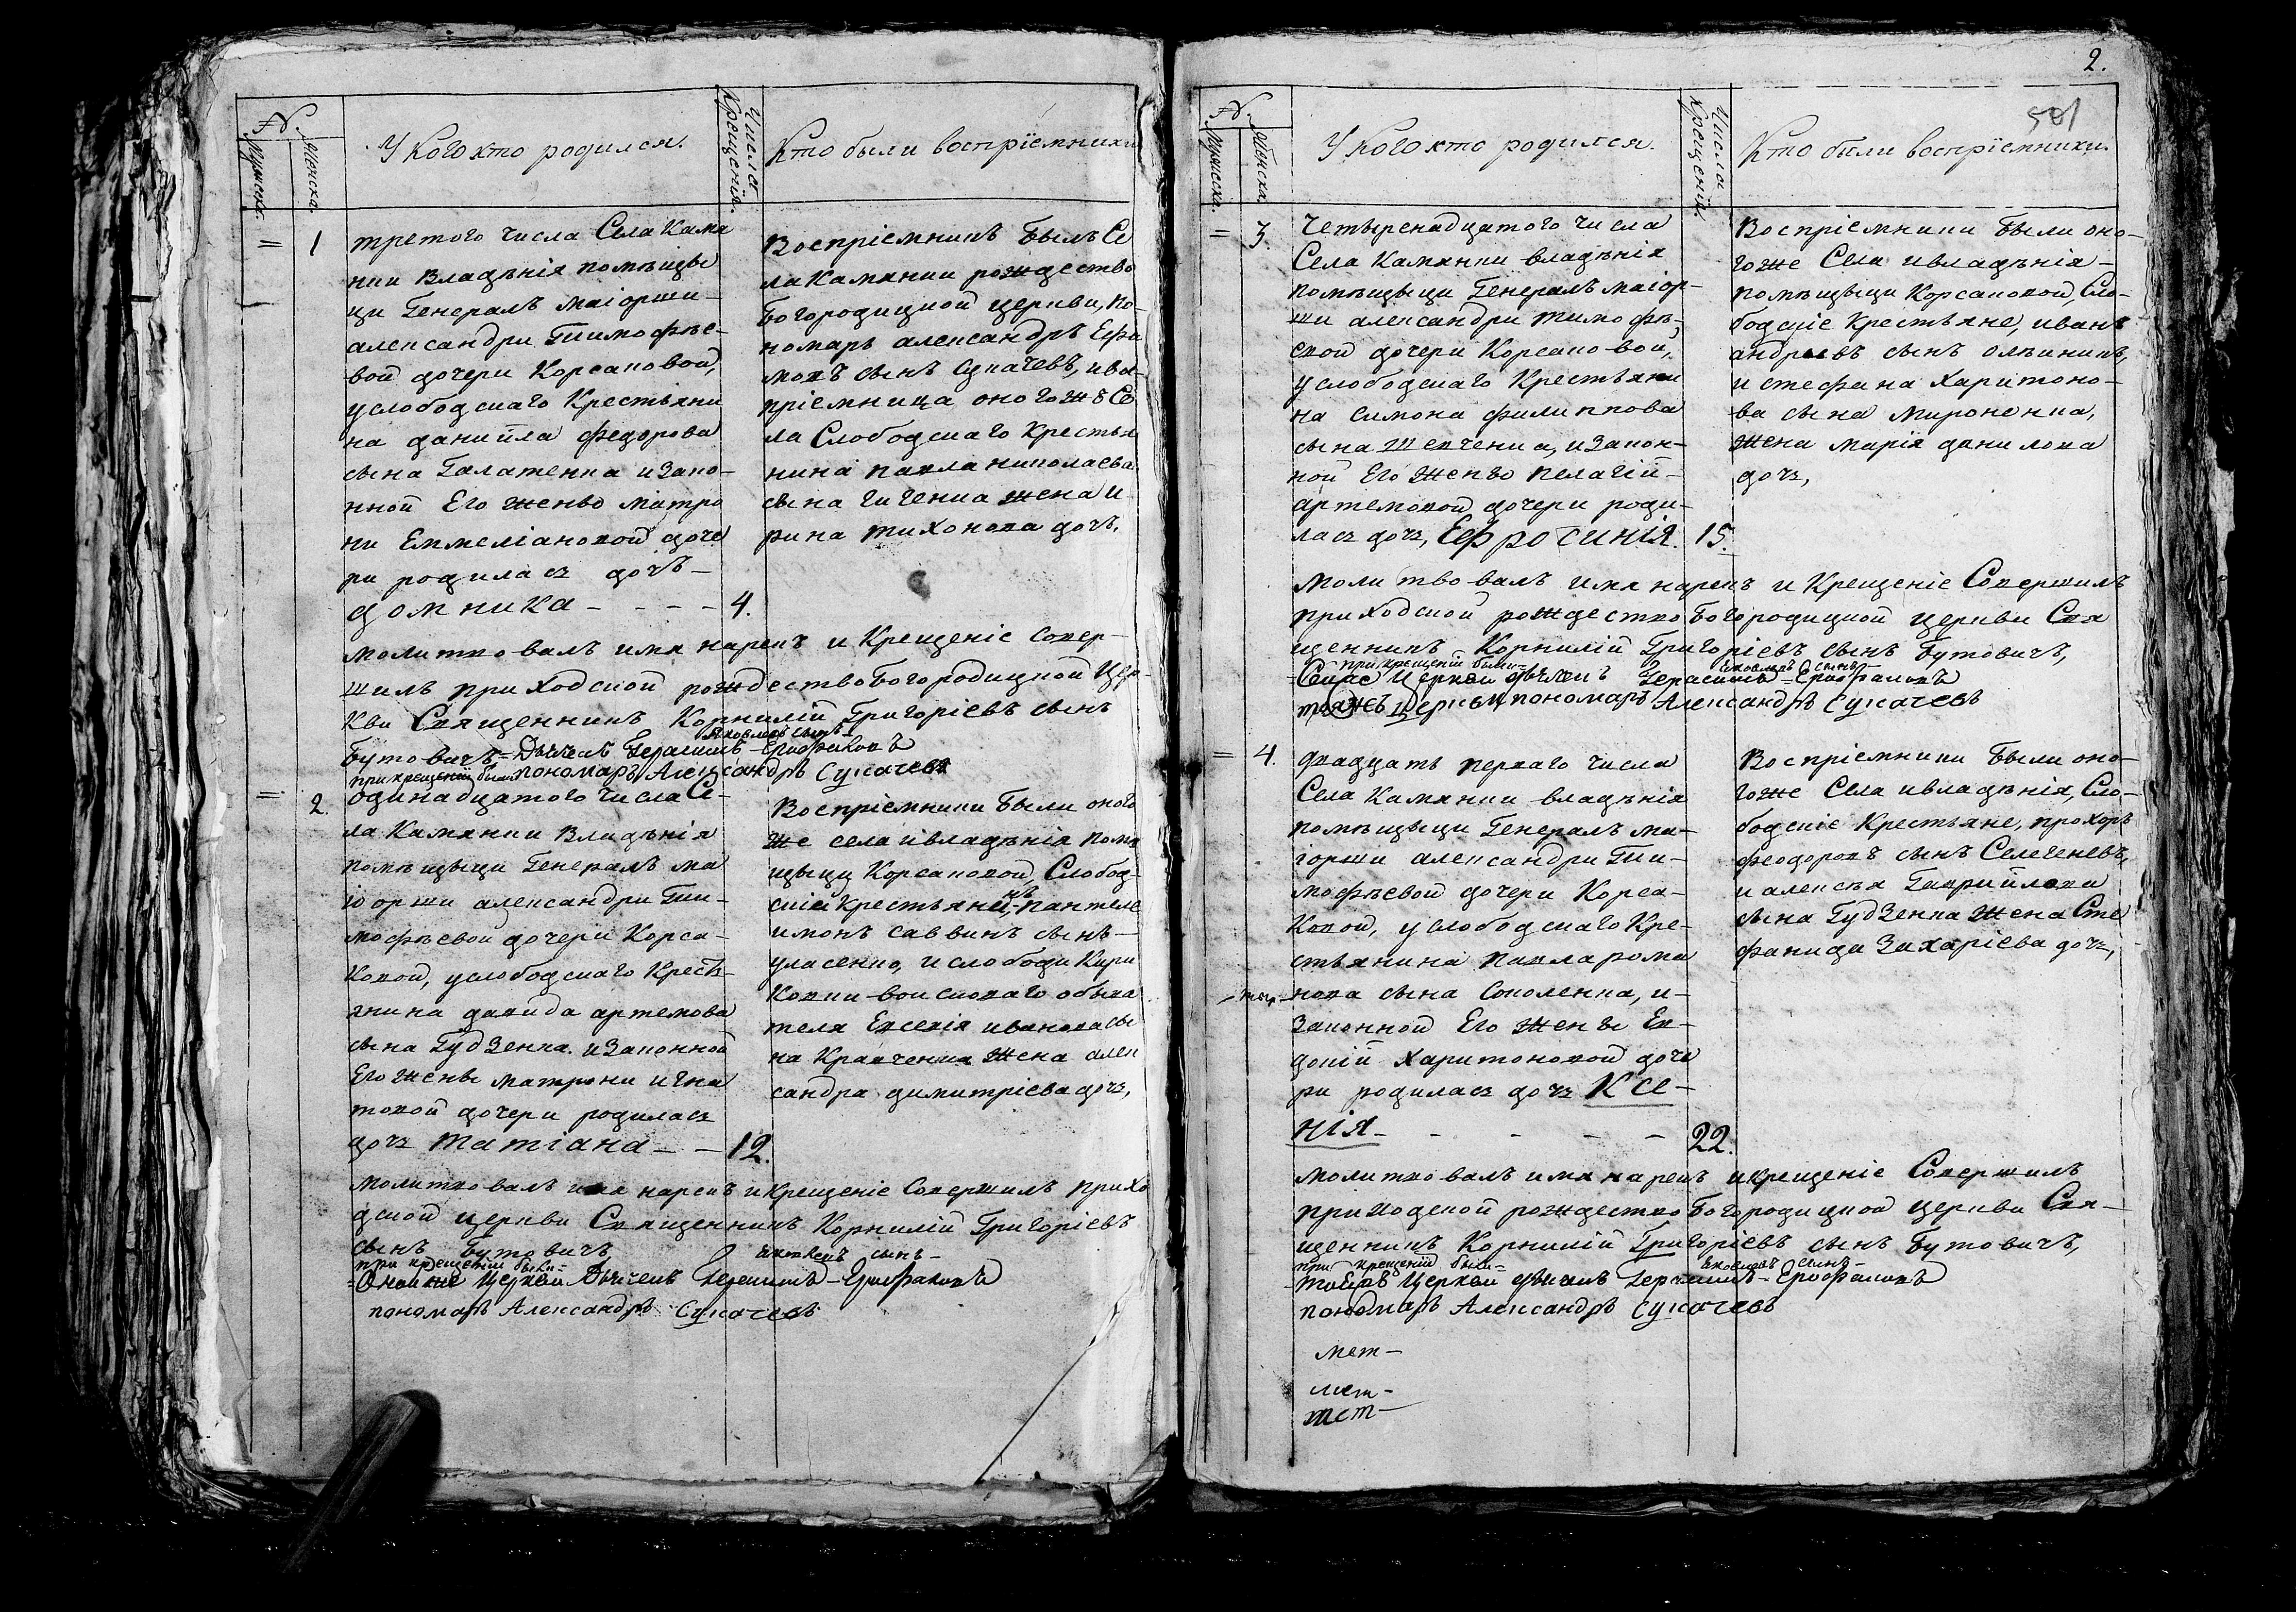 №
Мужеска.
Женска.
У кого кто родился.
Числа
Крещенія.
Кто были воспріємники
= 1
третого числа Села Камя
нки владѣнія помѣщи
ци Генералъ маіорши –
александри Тимофѣе–
вой дочери Корсаковой,
у слободскаго Крестьяни
на даниила федорова
сына Галатенка и Зако–
нной Его жены матро
ни Еммеліановой доче
ри родилась дочь –
домника – – – – 4.
Воспріємникъ былъ Се
ла Камянки рождество
богородицной церкви, по–
номарь александръ Ефи
мовъ сынъ Сукачевъ, и вос–
пріємница оного же Се
ла Слободскаго Крестья
нина павла николаева
сына гиченка жена и
рина тихонова дочь,
молитвовалъ имя нарекъ и Крещеніе совер–
шилъ приходской рождествобогородицной Цер–
кви Священникъ Корнилій Григоріевъ сынъ
Яковлевъ сынъ
Бутовичъ = Дьячекъ Герасимъ – Ерофаловъ
при крещеніи были пономарь Александръ Сукачевъ
= 2.
одинадцатого числа Се–
ла Камянки Владѣнія
помѣщици Генералъ ма
іорши александри Тим–
мофѣевой дочери Корса–
ковой, у слободскаго Кресть–
янина давида артемова
сына Гудзенка. и Законной
Его жены матрони игна
товой дочери родилась
дочь татіана – – 12.
Воспріємники были оного
же села и владѣнія помѣ
щици Корсаковой, Слобод–
скіе крестьяне, пантеле
имонъ саввинъ сынъ –
уласенко, и слободи Кири
ковки войсковаго обыва
теля Евсевія иванова сы
на Кравченка жена алек
сандра димитріева дочь,
молитвовалъ имя нарекъ и крещеніе Совершилъ прихо
дской церкви Священникъ Корнилій Григоріевъ
сынъ Бутовичъ,
при крещеніи были –
Яковлевъ сынъ –
– Оной же Церкви Дьячекъ Герасимъ – Ерофаловъ
пономарь Александръ Сукачевъ
2.
501
№.
Мужеска.
Женска.
У кого кто родился.
Числа
Крещенія.
Кто были воспріємники.
= 3.
Четыренадцатого числа
Села Камянки владѣнія
помѣщици Генералъ маіор–
ши александри тимофѣ–
евой дочери Корсаковой,
у слободскаго Крестьяни
на симона филиппова
сына Шевченка, и Закон–
ной Его жены пелагіи –
артемовой дочери роди–
лась дочь, Ефросинія. 15.
Воспріємники были оно–
гоже Села и владѣнія –
помѣщици Корсаковой, Сло–
бодскіе крестьяне, иванъ
андреевъ сынъ олѣйникъ,
и стефана харитоно–
ва сына мироненка,
жена марія данилова
дочь,
молитвовалъ имя нарекъ и Крещеніе Совершилъ
приходской рождествобогородицной церкви Свя
щенникъ Корнилій Григоріевъ сынъ Бутовичъ,
при крещеніи были –
Яковлевъ сынъ –
Церкви дьячекъ Герасимъ – Ерофаловъ
тояжъ Церкви пономарь Александръ Сукачевъ
= 4.
двадцать перваго числа
Села Камянки владѣнія
помѣщици Генералъ ма–
іорши александри Тим–
мофѣевой дочери Корса–
ковой, у слободскаго Кре–
стьянина павла рома
нова сына Соколенка, и –
Законной Его жены Ев–
докіи харитоновой доче
ри родилась дочь КСЕ–
НІЯ – – – – – 22.
Воспріємники были оно–
гоже Села и владѣнія, Сло–
бодскіе Крестьяне, прохоръ
феодоровъ сынъ Селегеневъ,
и алексѣя Гавриилова
сына Гудзенка жена Сте
фанида Захаріева дочь,
молитвовалъ имя нарекъ и крещеніе Совершилъ
приходской рождествобогородицной церкви Свя–
щенникъ Корнилій Григоріевъ сынъ бутовичъ,
при крещеніи были –
Яковлевъ сынъ –
Церкви дьячекъ Герасимъ – Ерофаловъ
пономарь Александръ Сукачевъ